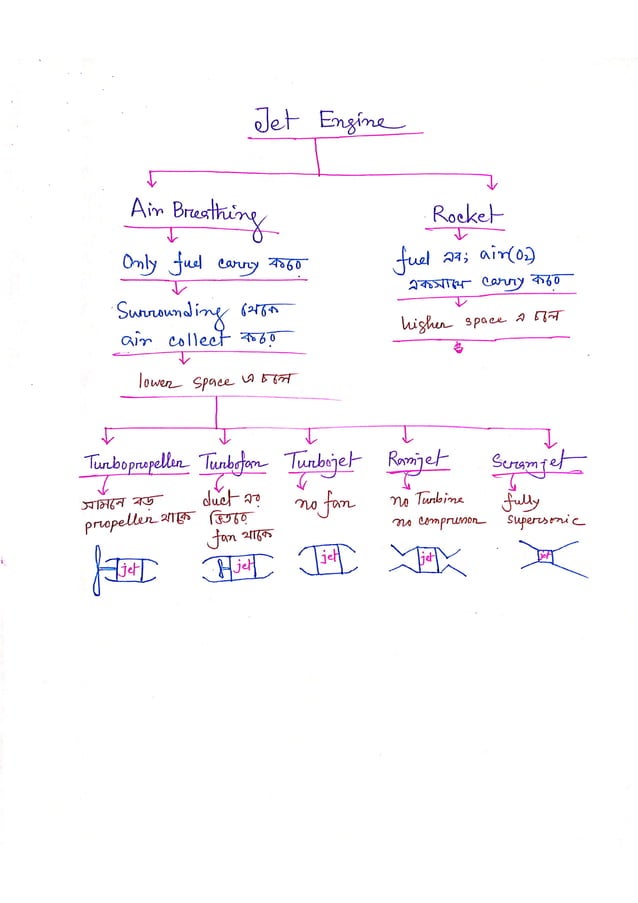 Jet Engine
Air Breathing
Rocket
Only fuel carry করে
fuel এবং air(O2)
একসাথে carry করে
Surrounding থেকে
air collect করে
higher space এ চলে
lower space এ চলে
Turbopropeller Turbofan Turbojet Ramjet Scramjet
সামনে বড়
propeller থাকে
duct এর
ভিতরে
fan থাকে
no fan
no Turbine
no compressor
fully
supersonic
jet jet jet jet jet